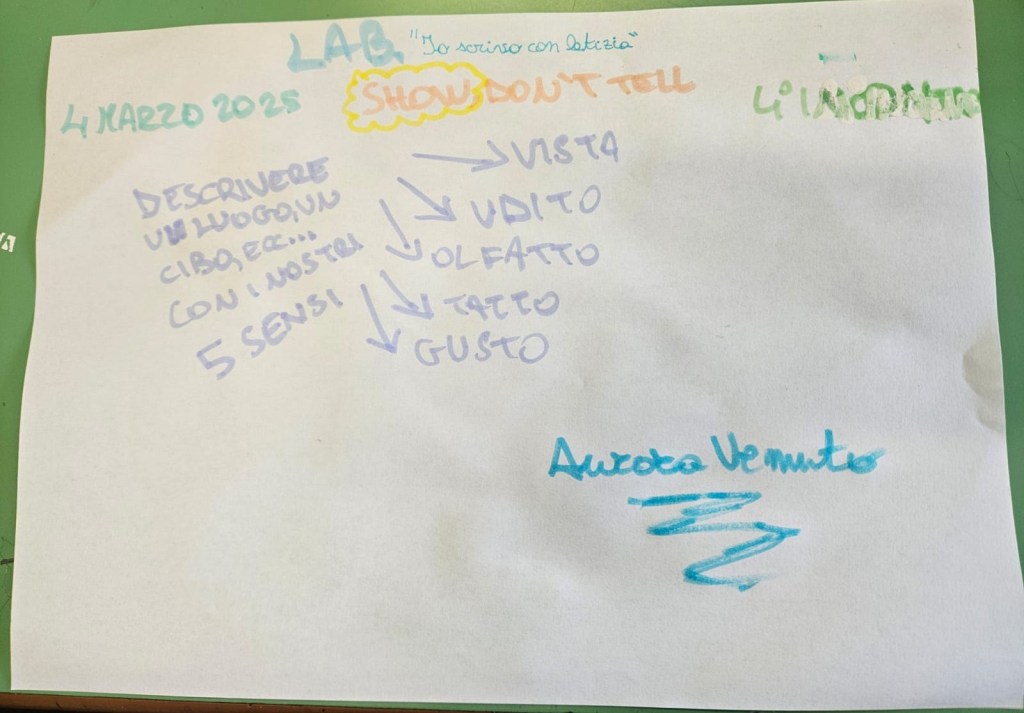 LAB. "Io scrivo con letizia"
SHOW DON'T TELL
4 MARZO 2025
4° INCONTRO
DESCRIVERE
UN LUOGO, UN
CIBO, ECC...
CON I NOSTRI
5 SENSI
VISTA
UDITO
OLFATTO
TATTO
GUSTO
Aurora Venuto